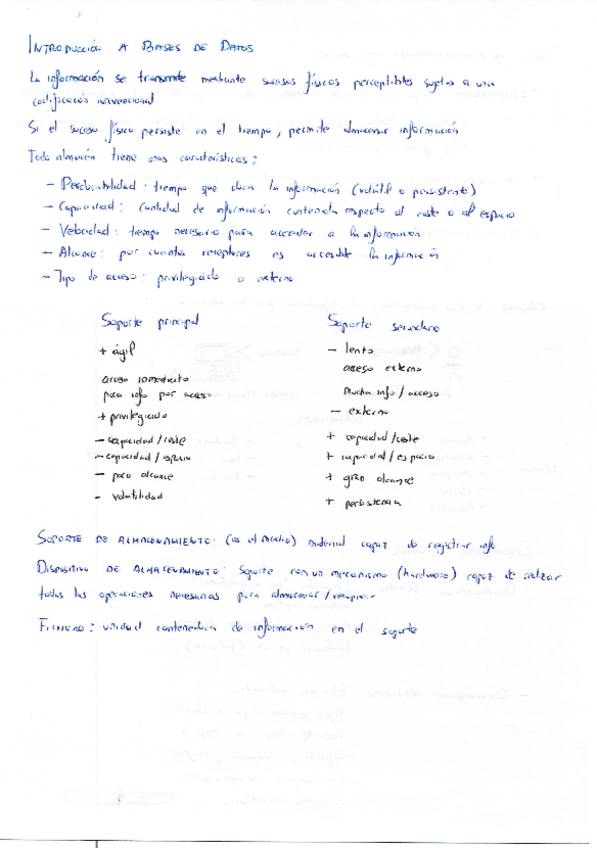 INTRODUCCIÓN A BASES DE DATOS
La información se transmite mediante sucesos físicos perceptibles sujetos a una
codificación convencional
Si el suceso físico persiste en el tiempo, permite almacenar información
Todo almacén tiene unas características:
- Perdurabilidad: tiempo que dura la información (volátil o persistente)
- Capacidad: cantidad de información contenida respecto al coste o al espacio
- Velocidad: tiempo necesario para acceder a la información
- Alcance: por cuantos receptores es accesible la información
- Tipo de acceso: privilegiado o externo
Soporte principal
+ ágil
acceso inmediato
poca info por acceso
+ privilegiado
- capacidad/coste
- capacidad/espacio
- poco alcance
- volatilidad
Soporte secundario
- lento
acceso externo
mucha info/acceso
- externo
+ capacidad/coste
+ capacidad/espacio
+ gran alcance
+ persistencia
SOPORTE DE ALMACENAMIENTO: (es el medio) material capaz de registrar info
DISPOSITIVO DE ALMACENAMIENTO: Soporte con un mecanismo (hardware) capaz de realizar
todas las operaciones necesarias para almacenar/recuperar
FICHERO: unidad contenedora de información en el soporte